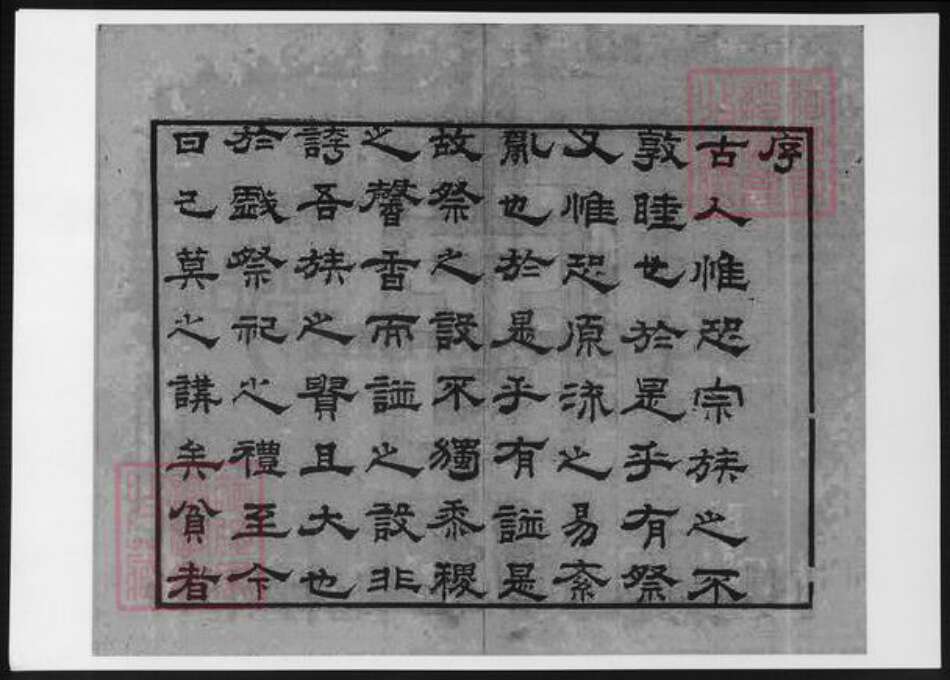 序
古人惟恐宗族之不
敦睦也於是乎有祭
又惟恐原流之易紊
亂也於是乎有諡是
故祭之設不獨黍稷
之馨香而諡之設非
誇吾族之賢且大也
於戲祭祀之禮至今
日已莫之講矣貧者